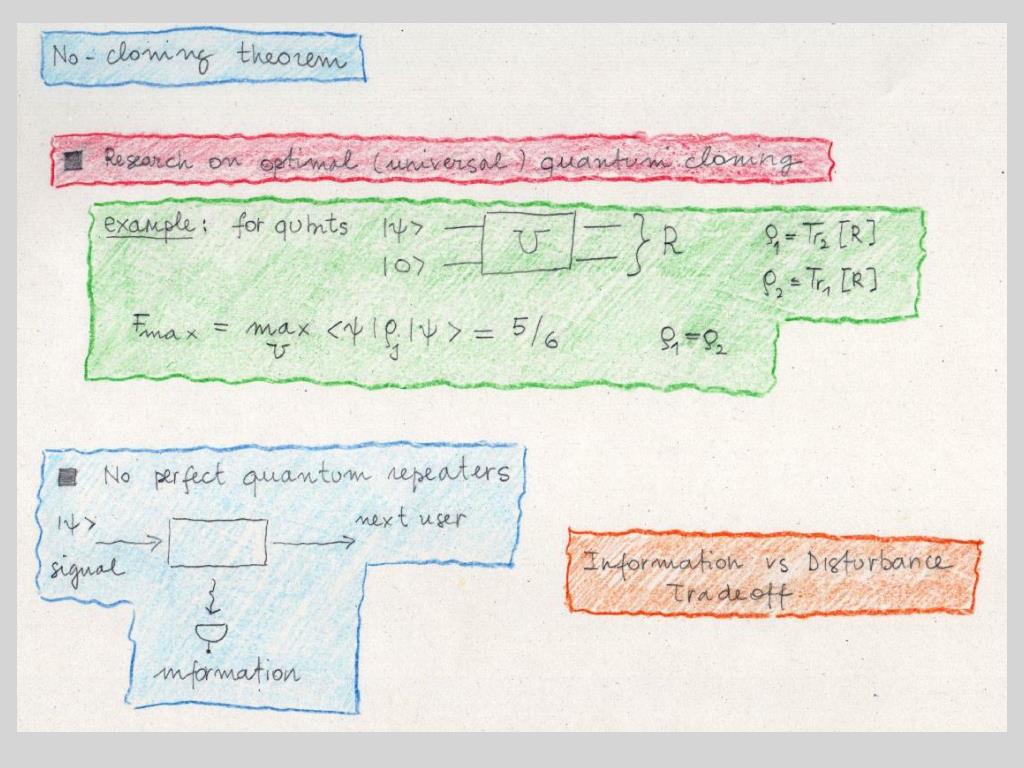 No-cloning theorem
■ Research on optimal (universal) quantum cloning
example: for qubits |ψ> U } R ρ₁ = Tr₂ [R]
|0> ρ₂ = Tr₁ [R]
Fmax = max <ψ|ρj|ψ> = 5/6 ρ₁=ρ₂
U
■ No perfect quantum repeaters
|ψ> next user
signal
information
Information vs Disturbance
Tradeoff